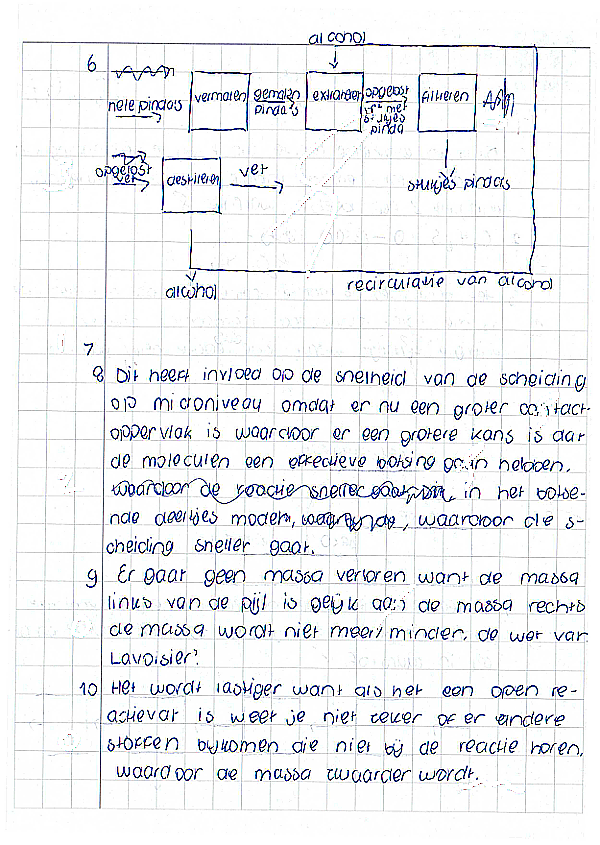 alcohol
6
hele pinda's
vermalen
gemalen
pinda's
extraheren
opgelost
vet met
stukjes
pinda
filtreren
opgelost
vet
destilleren
vet
stukjes pinda's
alcohol
recirculatie van alcohol
7
8 Dit heeft invloed op de snelheid van de scheiding
op microniveau omdat er nu een groter contact-
oppervlak is waardoor er een grotere kans is dat
de moleculen een effectieve botsing gaan hebben.
in het botse-
nde deeltjes model, waardoor die s-
cheiding sneller gaat.
9 Er gaat geen massa verloren want de massa
links van de pijl is gelijk aan de massa rechts
de massa wordt niet meer/minder. de wet van
Lavoisier.
10 Het wordt lastiger want als het een open re-
actievat is weet je niet zeker of er andere
stoffen bijkomen die niet bij de reactie horen.
waardoor de massa zwaarder wordt.